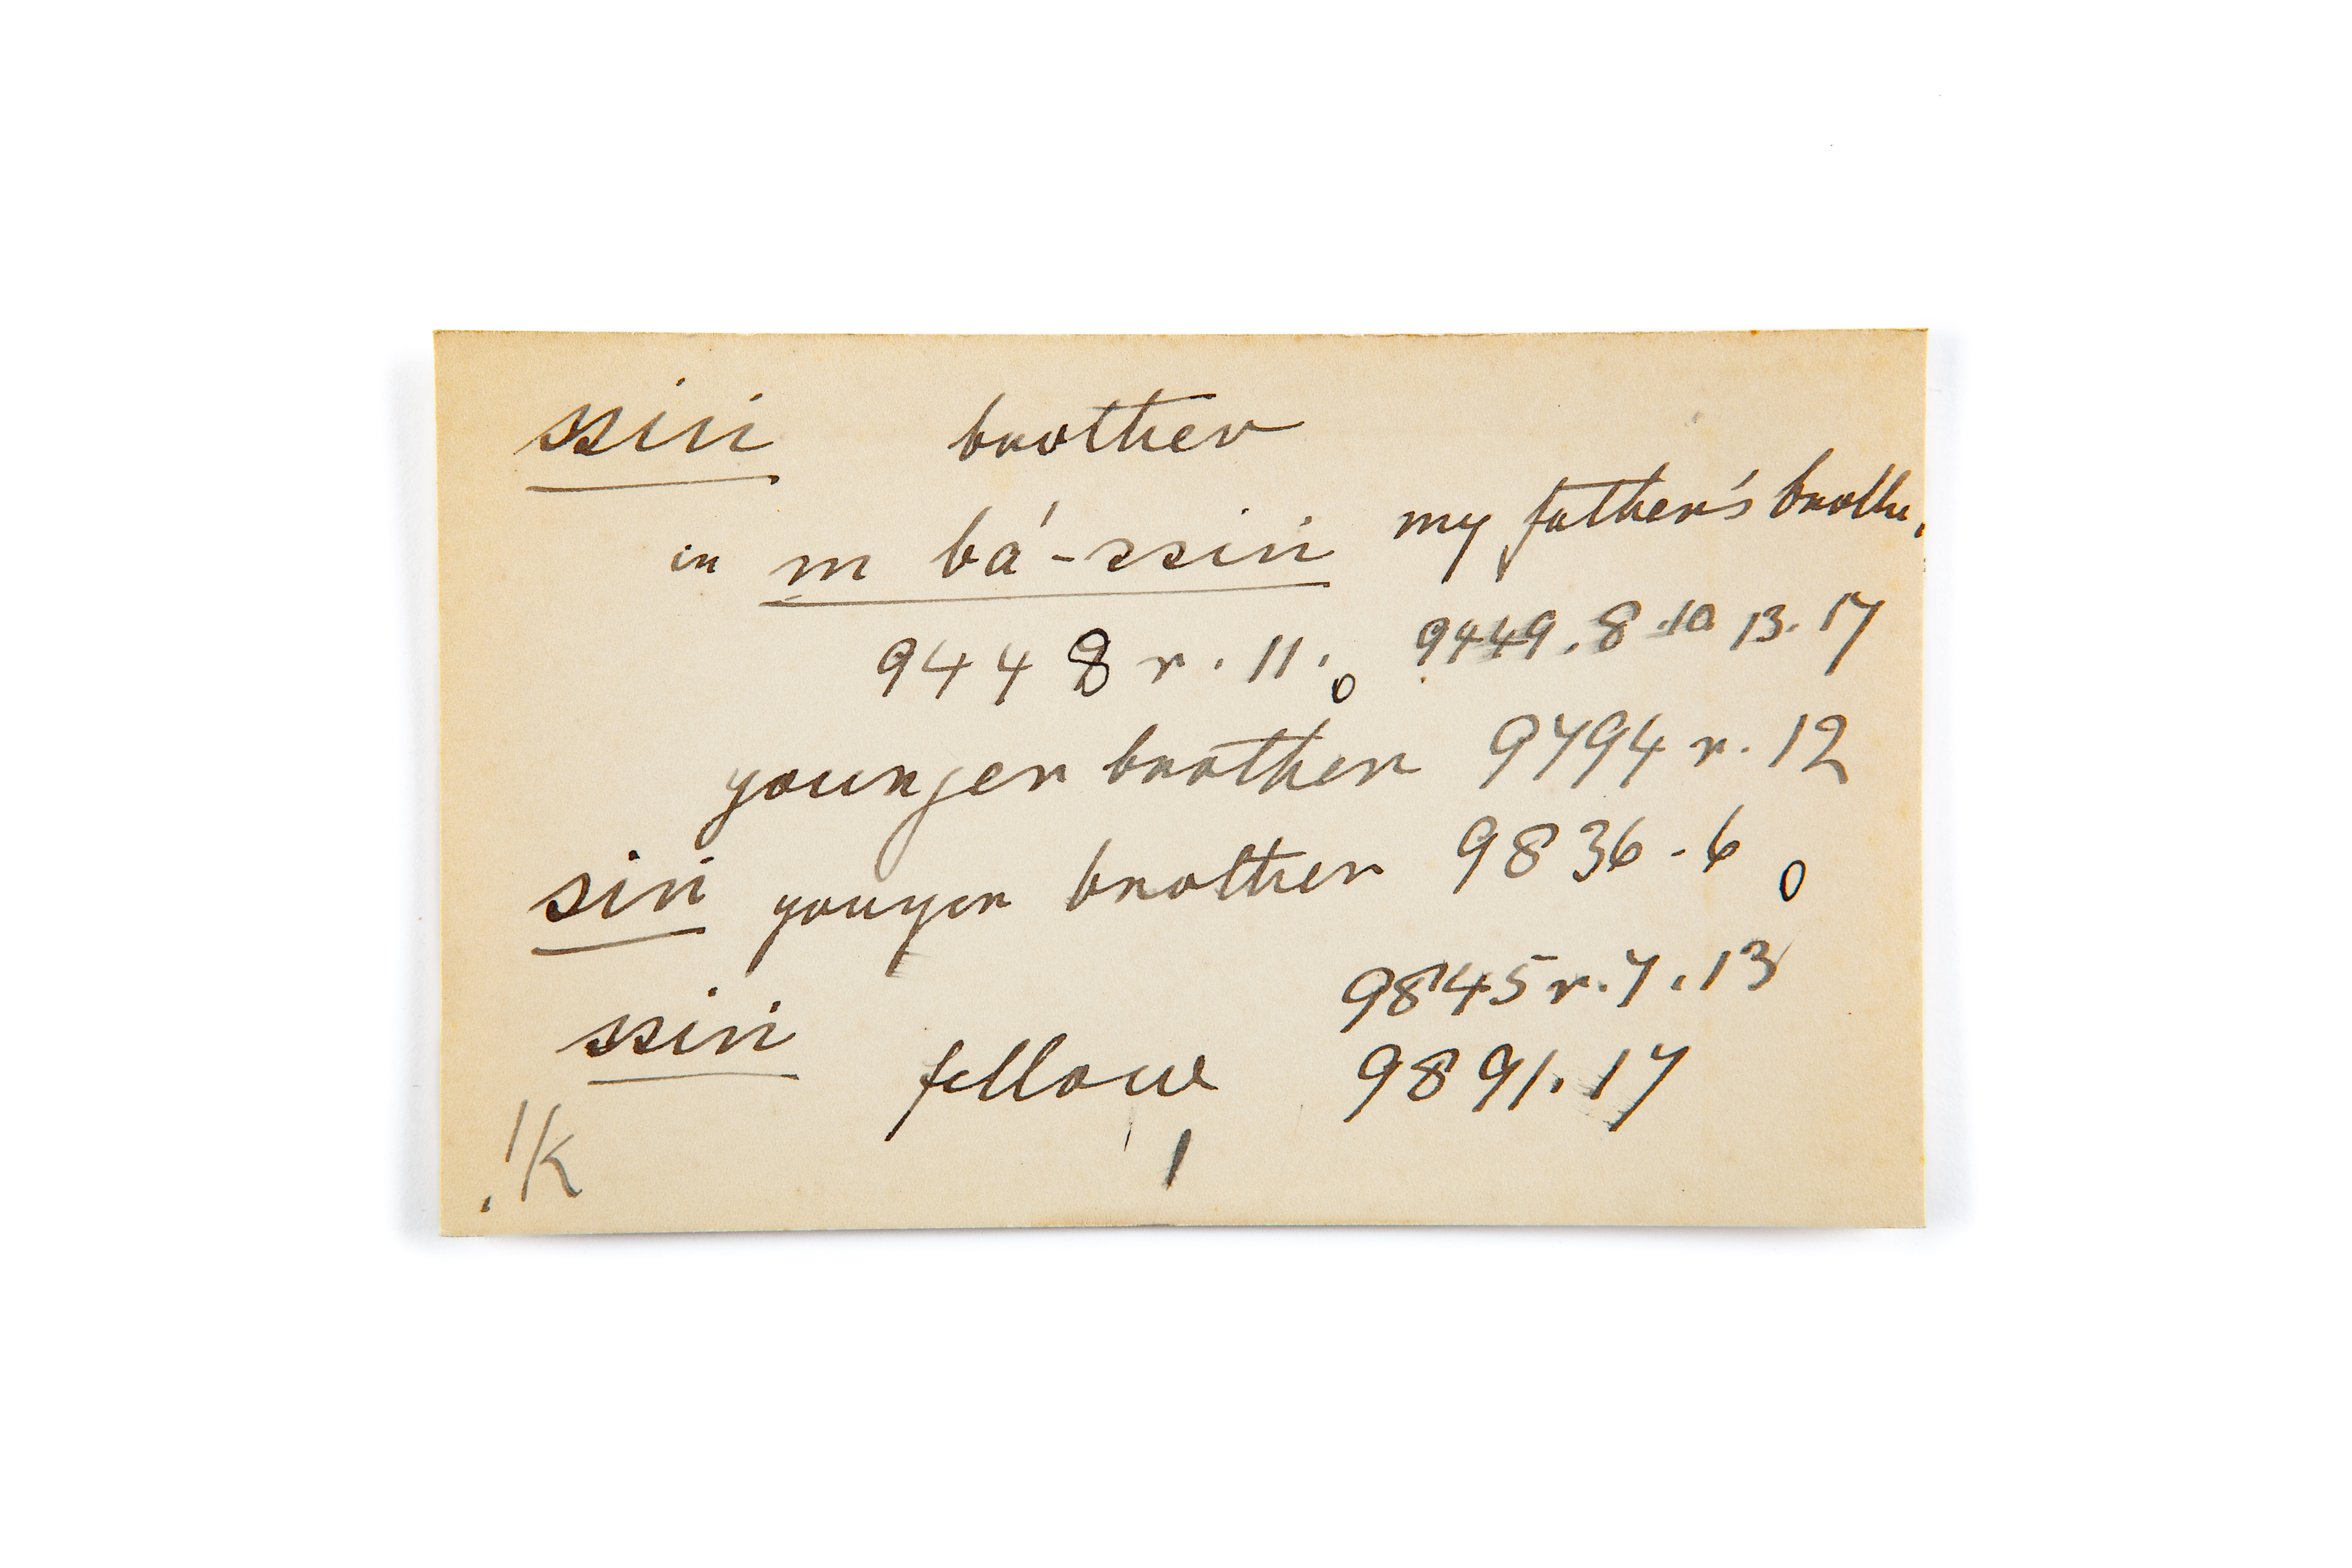 ssin brother
in m bá-ssin my father's brother
9448 r. 11. 9449. 8.10 13. 17
younger brother 9794 r. 12
sin younger brother 9836-6
9845 r. 7. 13
ssin fellow 9891. 17
!k